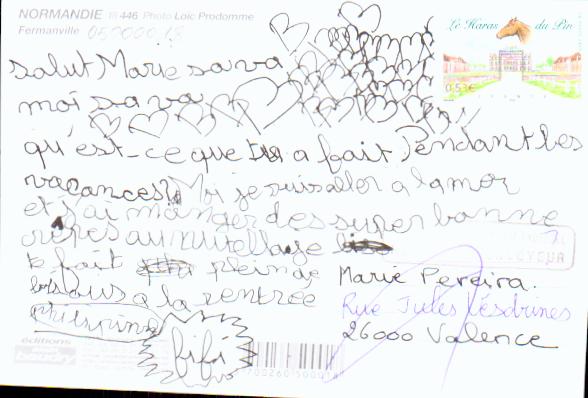 NORMANDIE 446 Photo Loïc Prodomme
Fermanville
Le Haras du Pin
0,53 €
salut Marie sa va
moi sa va
qu'est-ce que tu a fait Pendant tes
vacances? Moi je suis aller a la mer
et j'ai manger des super bonne
crêpes au nutellage
te fait plein de
bisous a la rentrée
fifi
Marie Pereira.
Rue Jules Vésdrines
26000 Valence
éditions
baudry